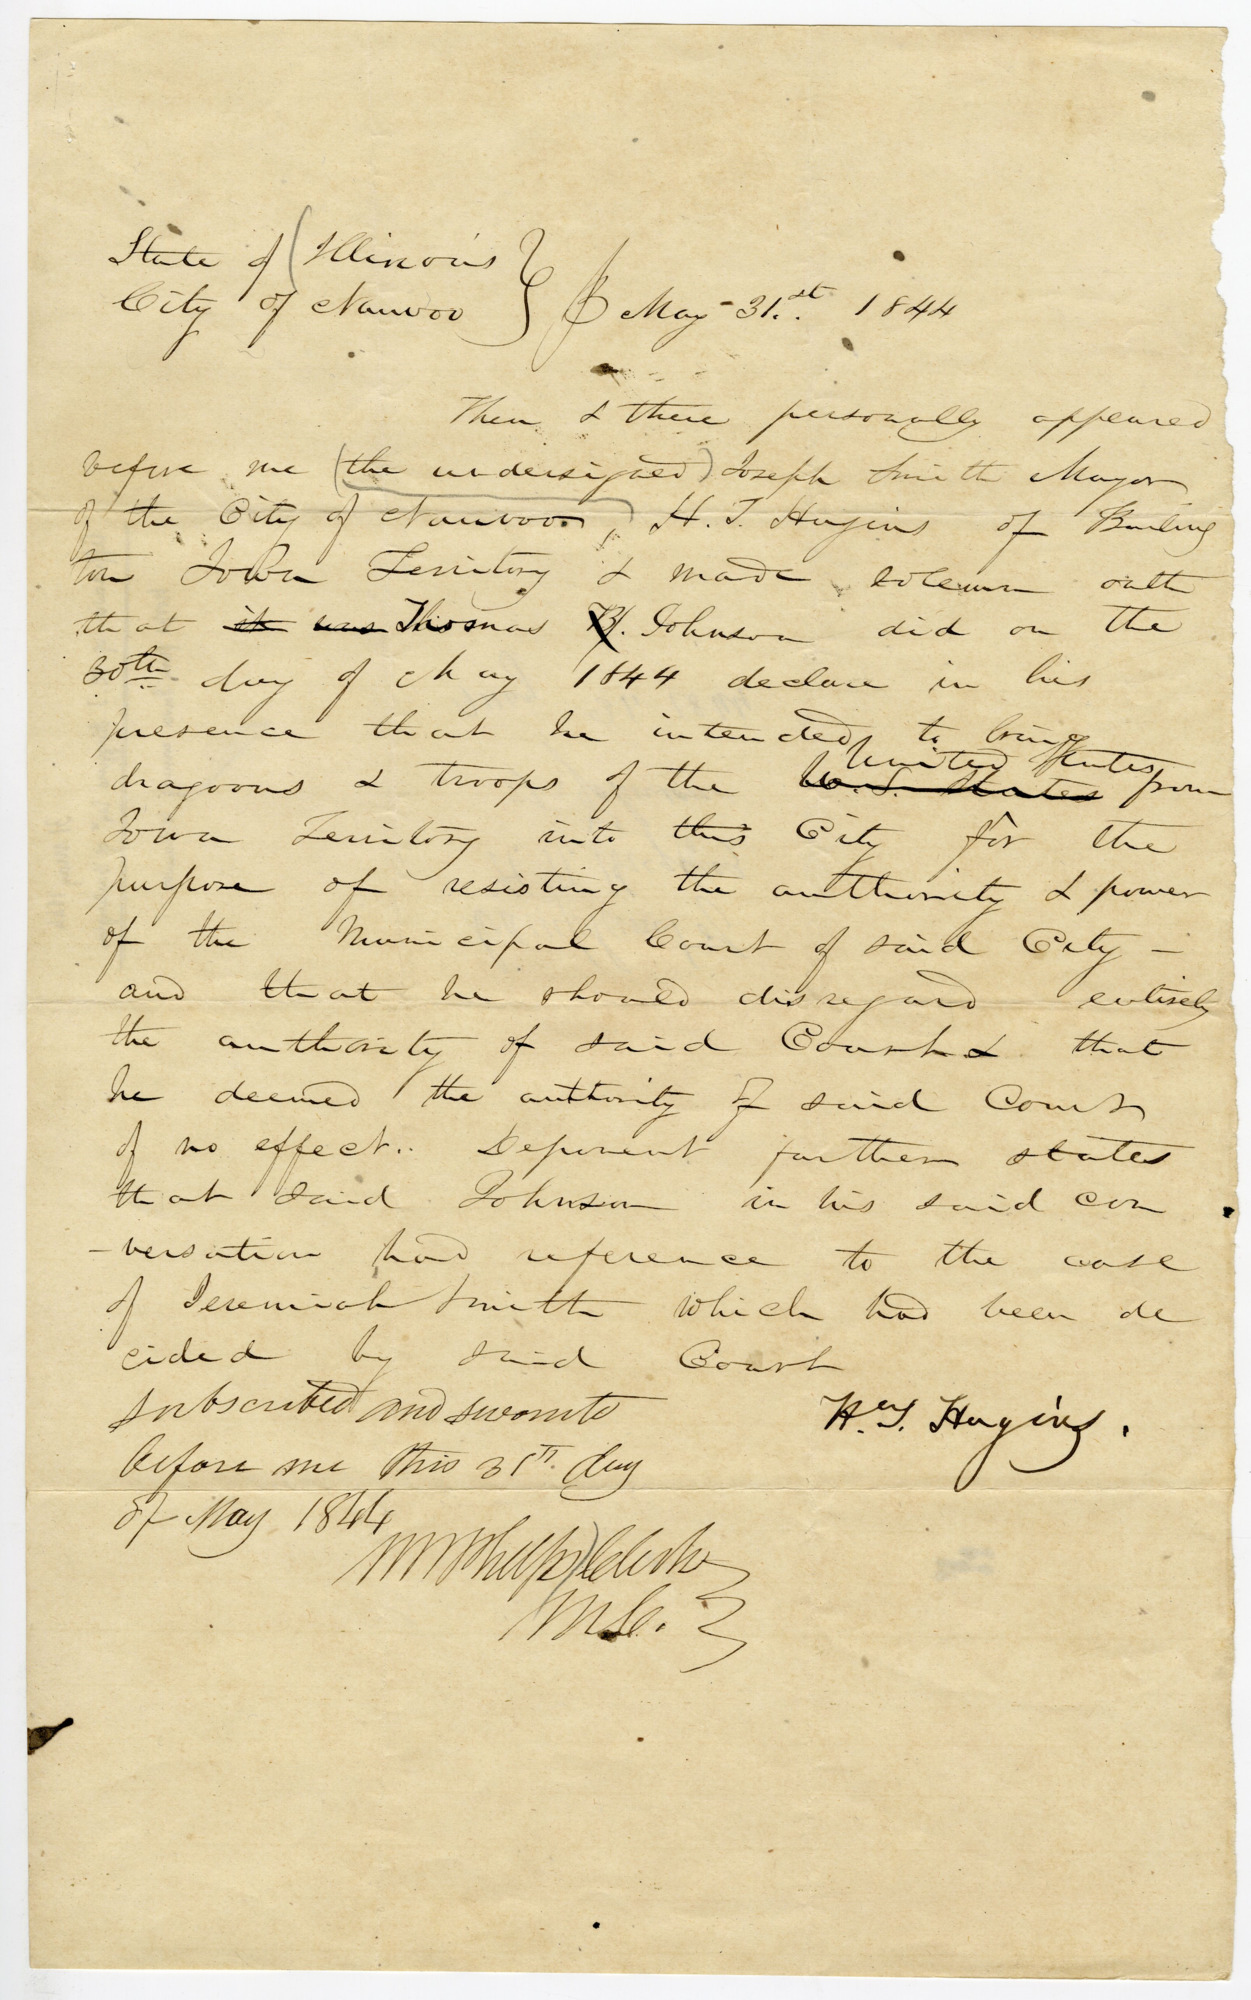 State of Illinois
City of Nauvoo } May 31.st 1844
Then & there personally appeared
before me (the undersigned) Joseph Smith Mayor
of the City of Nauvoo, H. T. Hugins of Burling
ton Iowa Territory & made solemn oath
that it was Thomas B. Johnson did on the
30th day of May 1844 declare in his
presence that he intended to bring
United States
dragoons & troops of the U. S. States from
Iowa Territory into this City for the
purpose of resisting the authority & power
of the Municipal Court of said City —
and that he should disregard entirely
the authority of said Court & that
he deemed the authority of said Court
of no effect.. Deponent further states
that said Johnson in his said con
-versation had reference to the case
of Jeremiah Smith which had been de
cided by said Court
subscribed and sworn to
Hy. T. Hugins.
before me this 31st. day
of May 1844
W W Phelps Clerk
M. C.